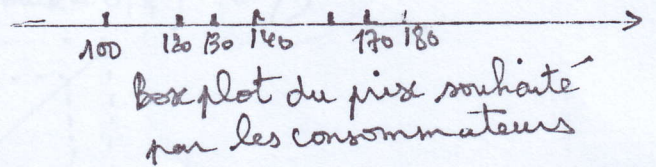 100 120 130 140 170 180
Box plot du prix souhaité
par les consommateurs